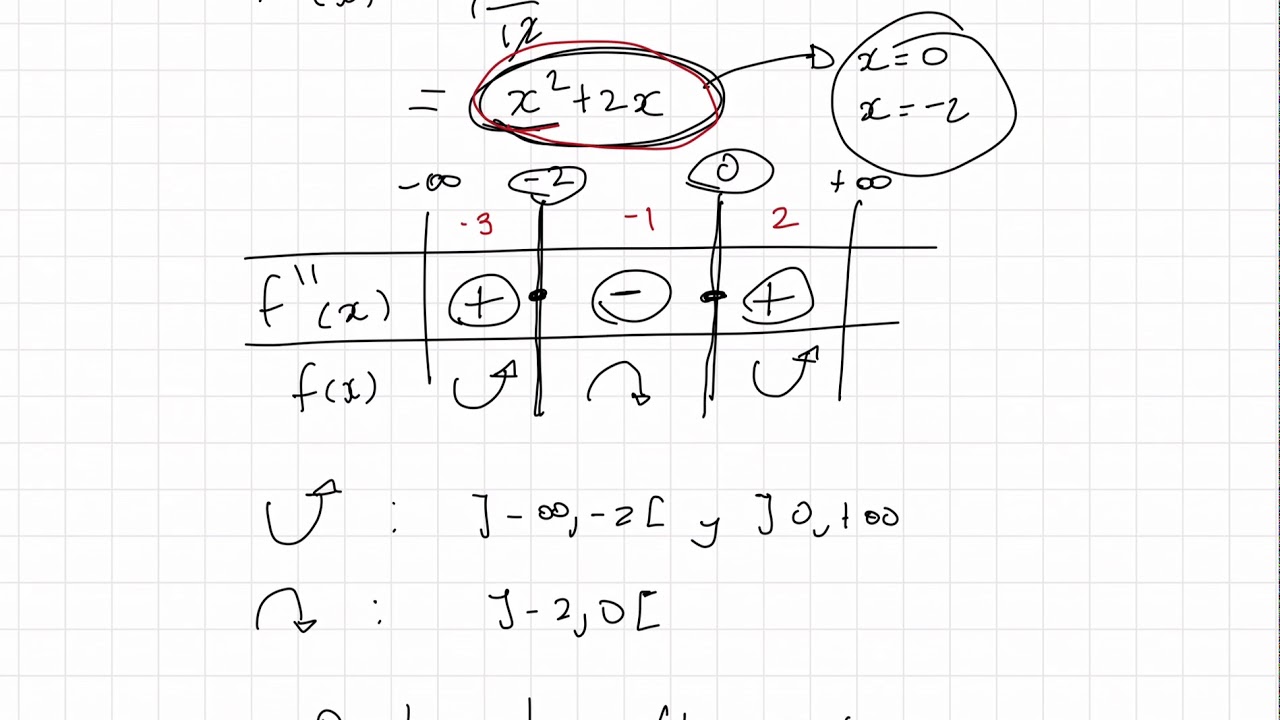 = x² + 2x
x = 0
x = -2
-∞ -2 0 +∞
-3 -1 2
f''(x) + - +
f(x)
: ]-∞, -2[ y ]0, +∞
: ]-2, 0[